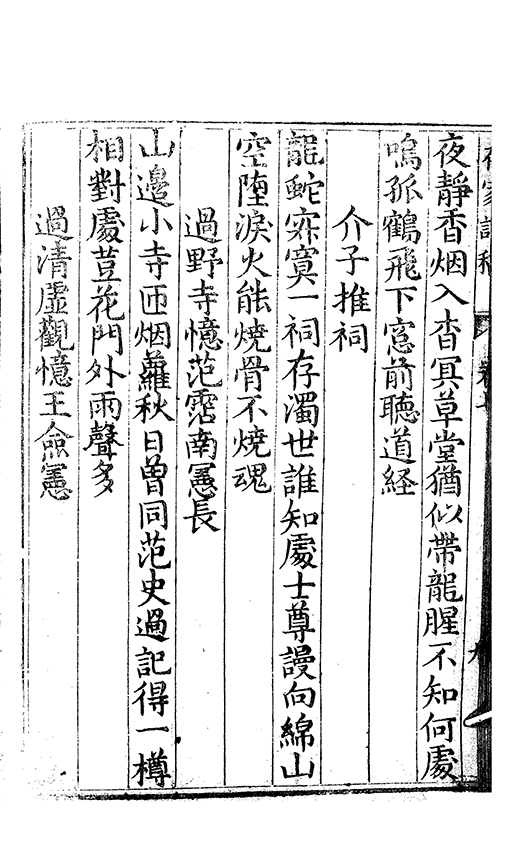 夜靜香烟入杳冥草堂猶似帶龍腥不知何處
鳴孤鶴飛下窓前聽道經
介子推祠
龍蛇寂寞一祠存濁世誰知處士尊謾向綿山
空墮淚火能燒骨不燒魂
過野寺憶范霑南憲長
山邊小寺匝烟蘿秋日曽同范史過記得一樽
相對處荳花門外雨聲多
過清虛觀憶王僉憲